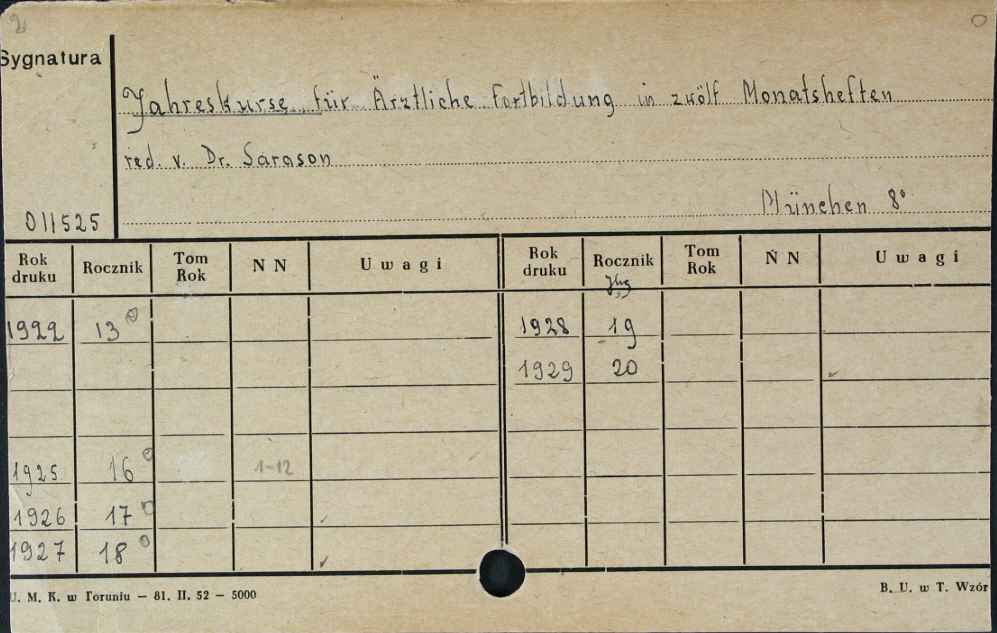 Sygnatura
Jahreskurse für Ärztliche Fortbildung in zwölf Monatsheften
red. v. Dr. Sarason
München 8°
011525
Rok druku Rocznik Tom Rok N N Uwagi Rok druku Rocznik Tom Rok N N Uwagi
Jhg
1922 13 1928 19
1929 20
1925 16 1-12
1926 17
1927 18
U. M. K. w Toruniu — 81. II. 52 — 5000
B. U. w T. Wzór